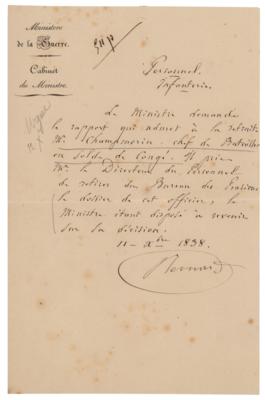 Ministère
de la Guerre.
Cabinet
du Ministre.
Personnel
Infanterie
Le Ministre demande
le rapport qui admet à la retraite
Mr. Champmorin, chef de Bataillon
en Solde de Congé. Il prie
Mr. le Directeur du Personnel
de retirer du Bureau des Pensions
le dossier de cet officier, le
Ministre étant disposé à revenir
sur sa décision.
11 - Xbre 1838.
Bernard